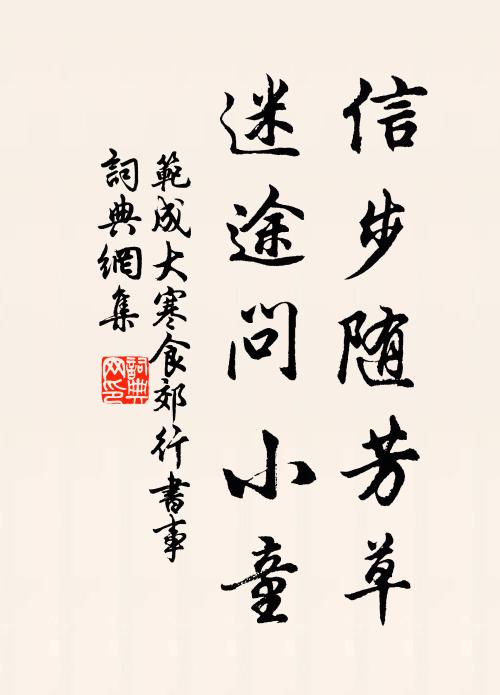 信步随芳草
迷途问小童
範成大寒食郊行書事
詞典網集
詞典
网印